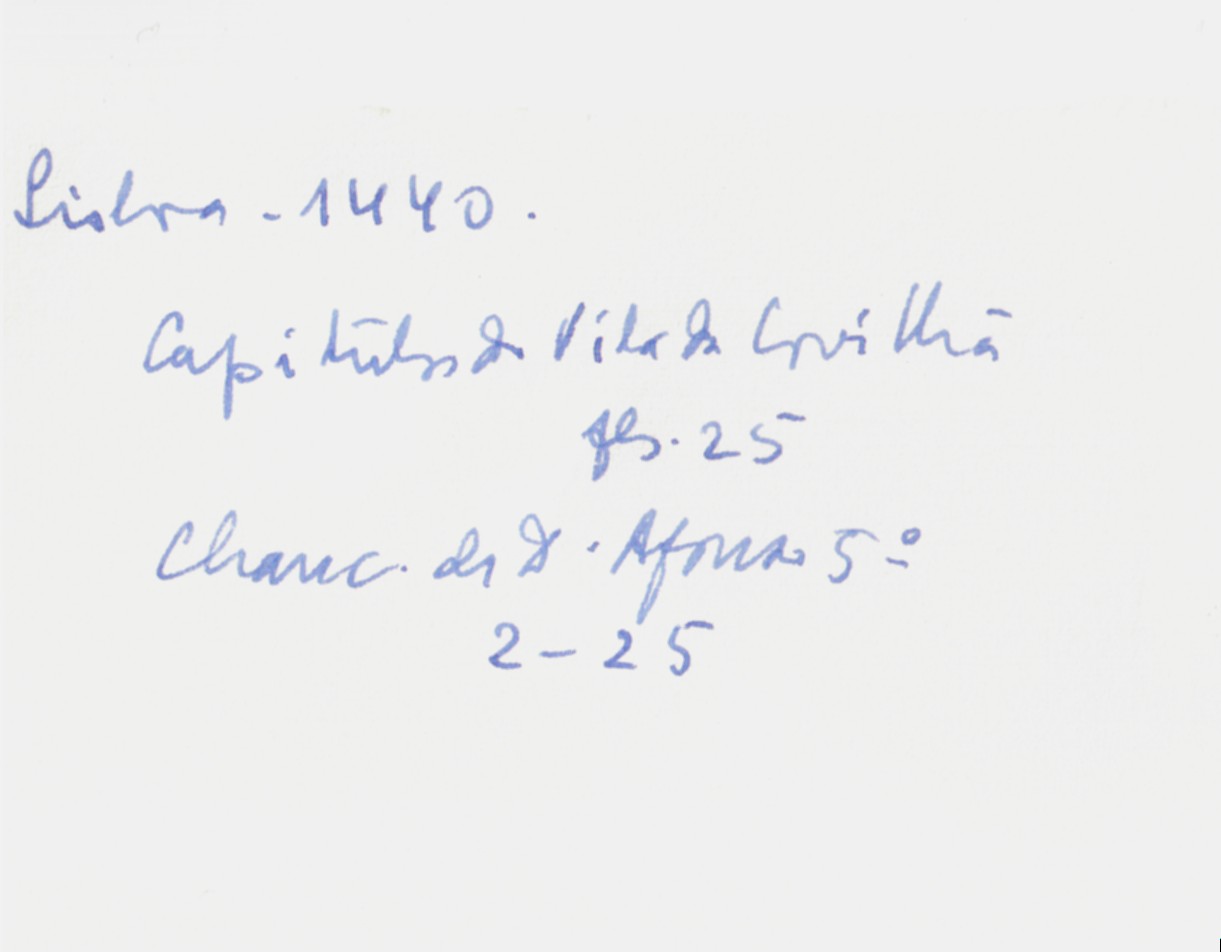 Lisboa - 1440.
Capitulos da Vila da Covilhã
fls. 25
Chanc. de D. Afonso 5º
2 - 25